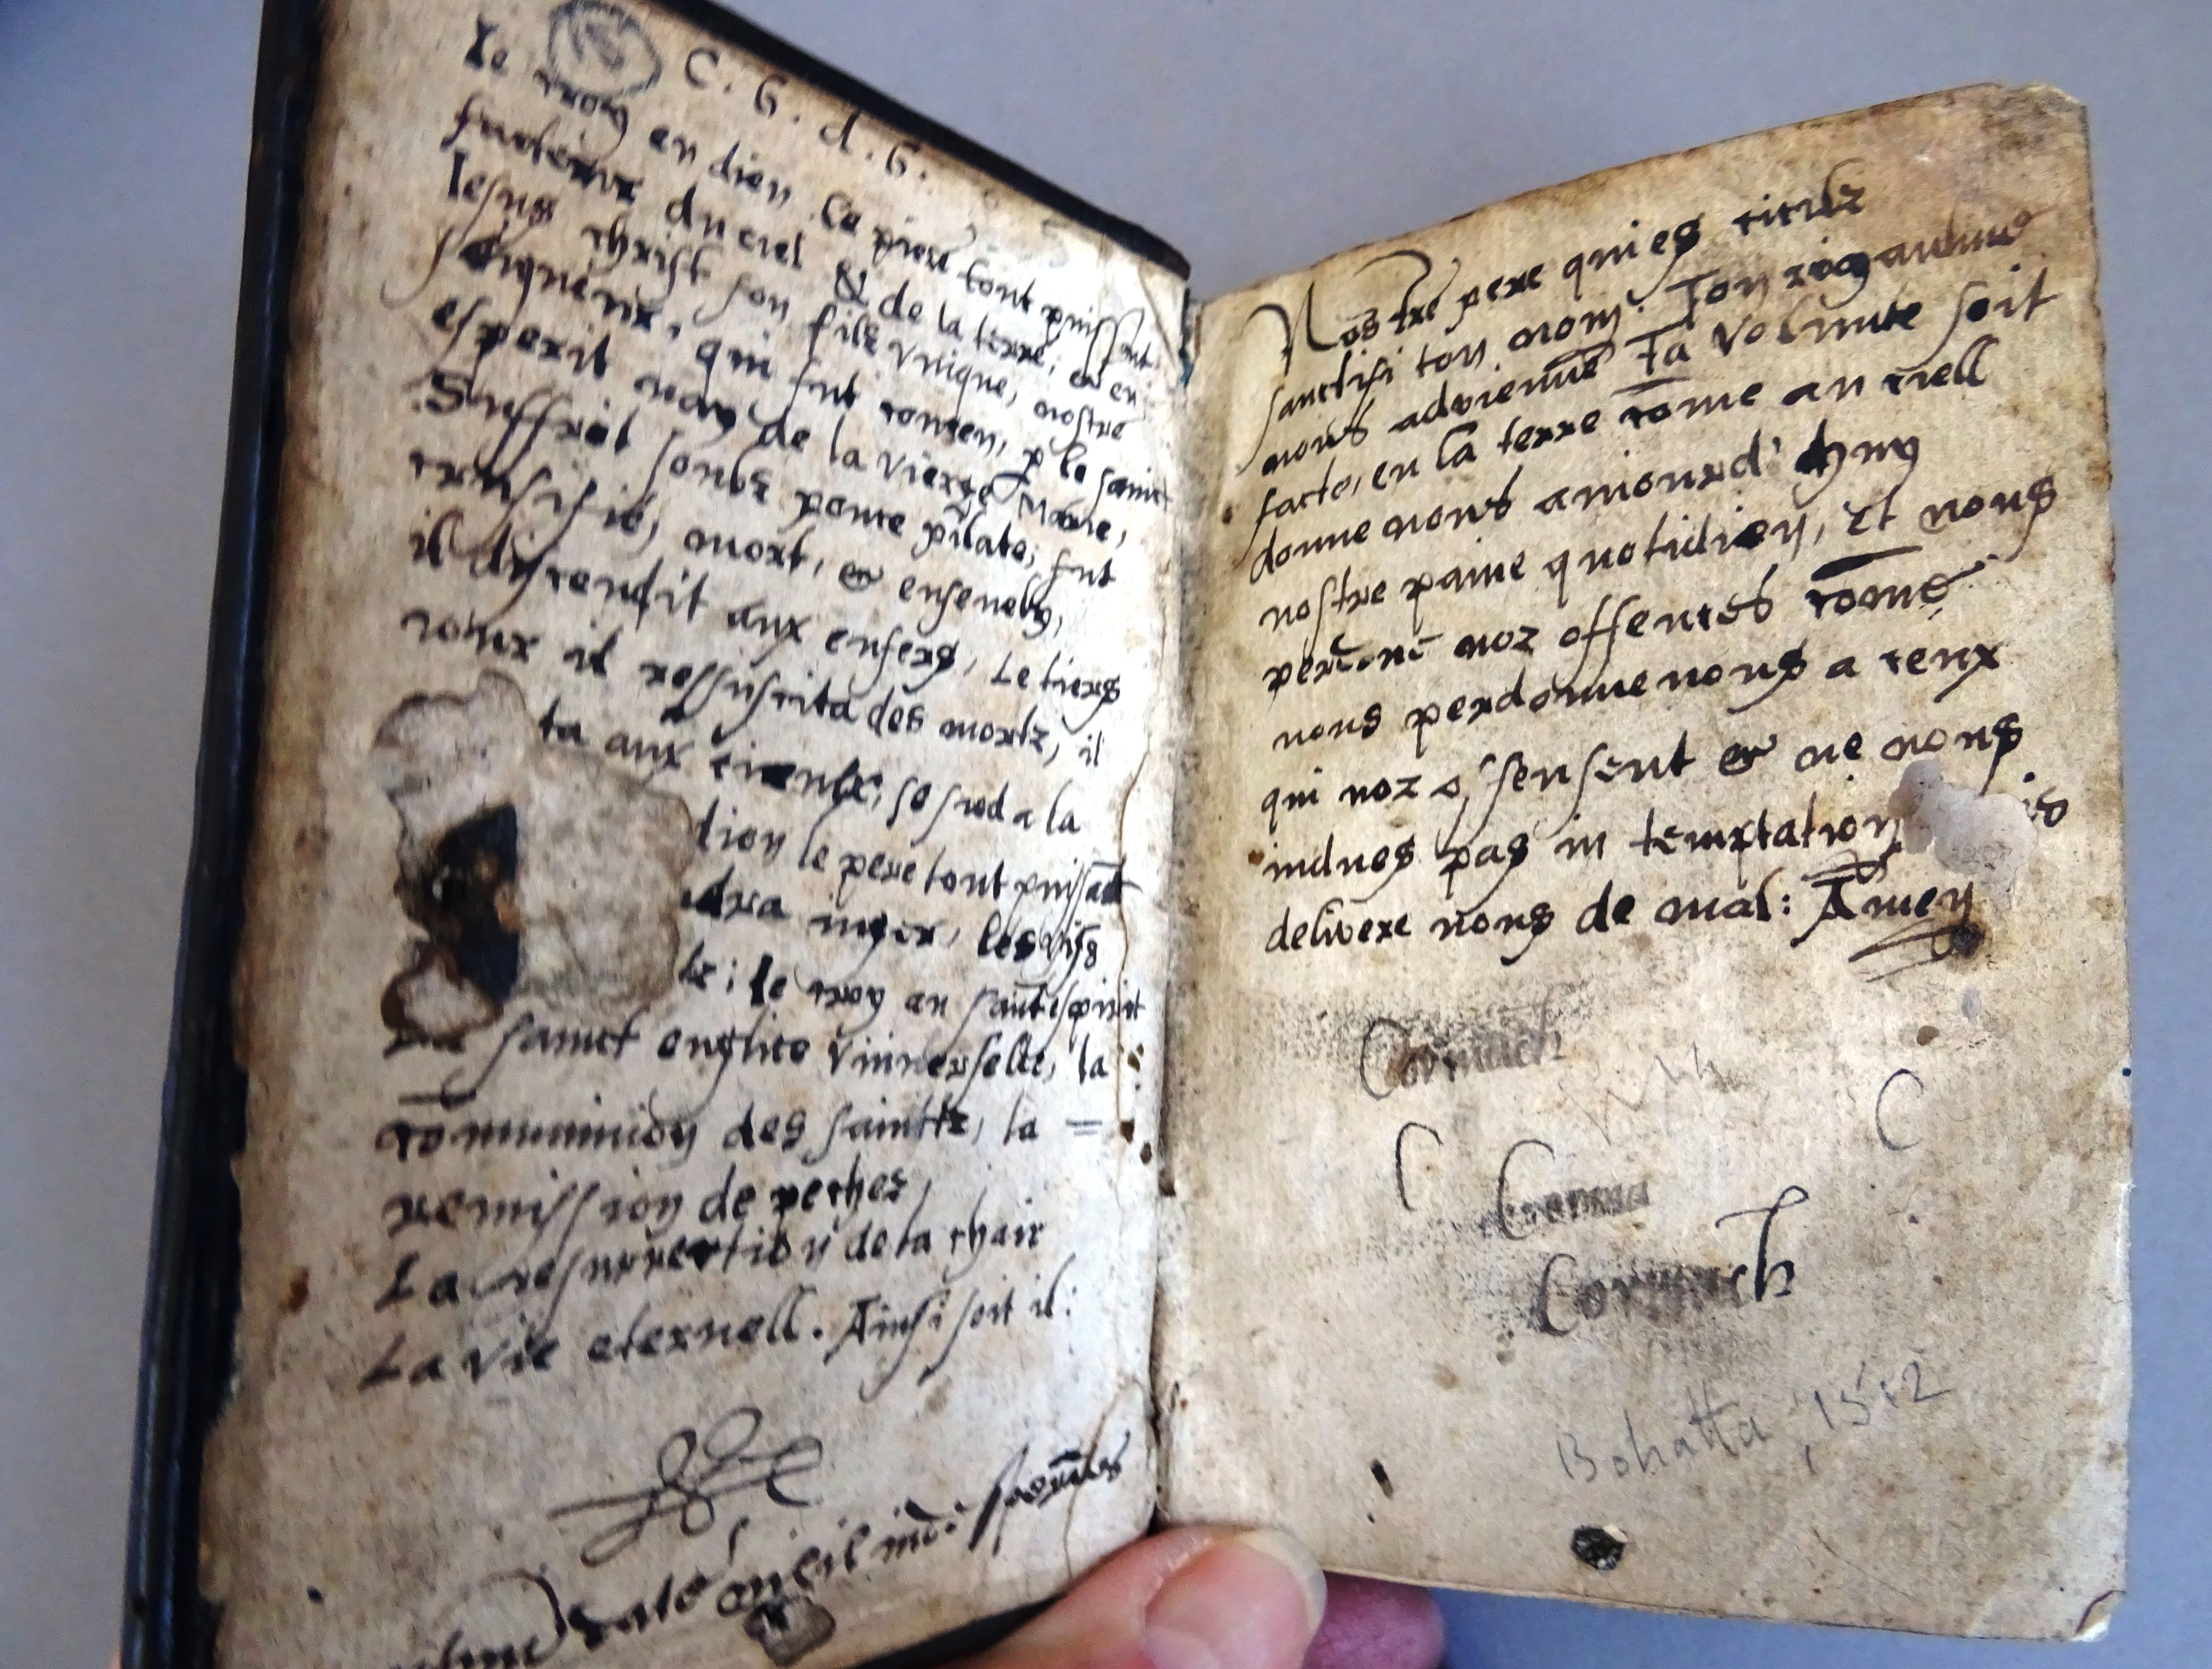 C. G. d. G.
Ie croy en dieu Le piere tout puissant
Iesus christ son filz vnique, nostre
seigneur, qui fut conceu, p le sainct
esperit nay de la vierge Marie,
Suffrit soubz ponce pilate, fut
crusifié, mort, & enseuely,
il discendit aux enfers, Le tiers
iour il ressuscita des mortz, il
ta aux cieulx, se sied a la
dieu le pere tout puissāt
dra iuger, les vifs
tz; Ie croy en saīct espirit
sainct englise vniuerselle, la
communion des sainctz, la =
remission de peches,
La resurrection de la chair
La vie eternell. Ainsi soit il:
Nostre pere qui es
sanctifi ton nom. Ton
nous advienne Ta volunte soit
facte, en la terre cōme au ciell
donne nous aniourd' huy
nostre paine quotidien, et nous
noz offences cōme
nous perdonne nous a ceux
qui noz offensent & ne nous
indues pas in temptation
delivere nous de mal: Amen
Cormach
C
C
Cormach
Bohatta,